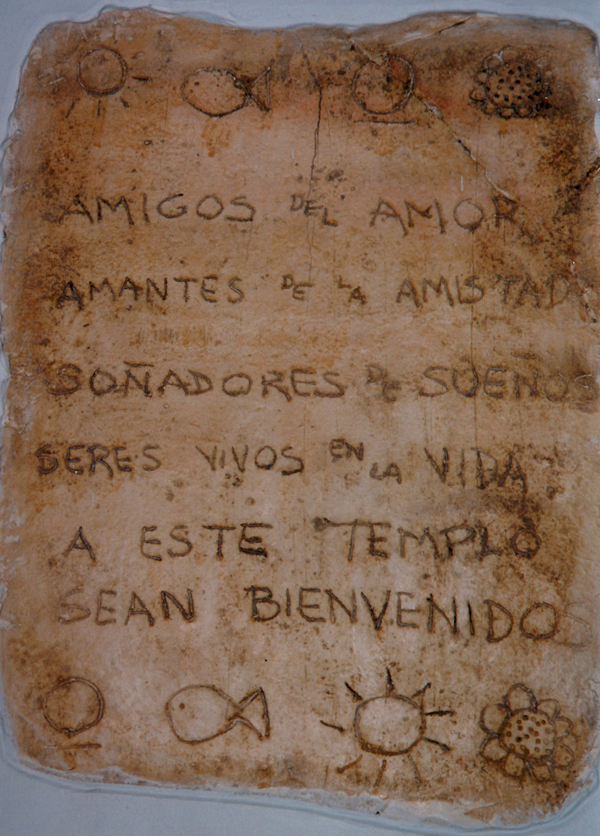 AMIGOS DEL AMOR
AMANTES DE LA AMISTAD
SOÑADORES DE SUEÑOS
SERES VIVOS EN LA VIDA
A ESTE TEMPLO
SEAN BIENVENIDOS